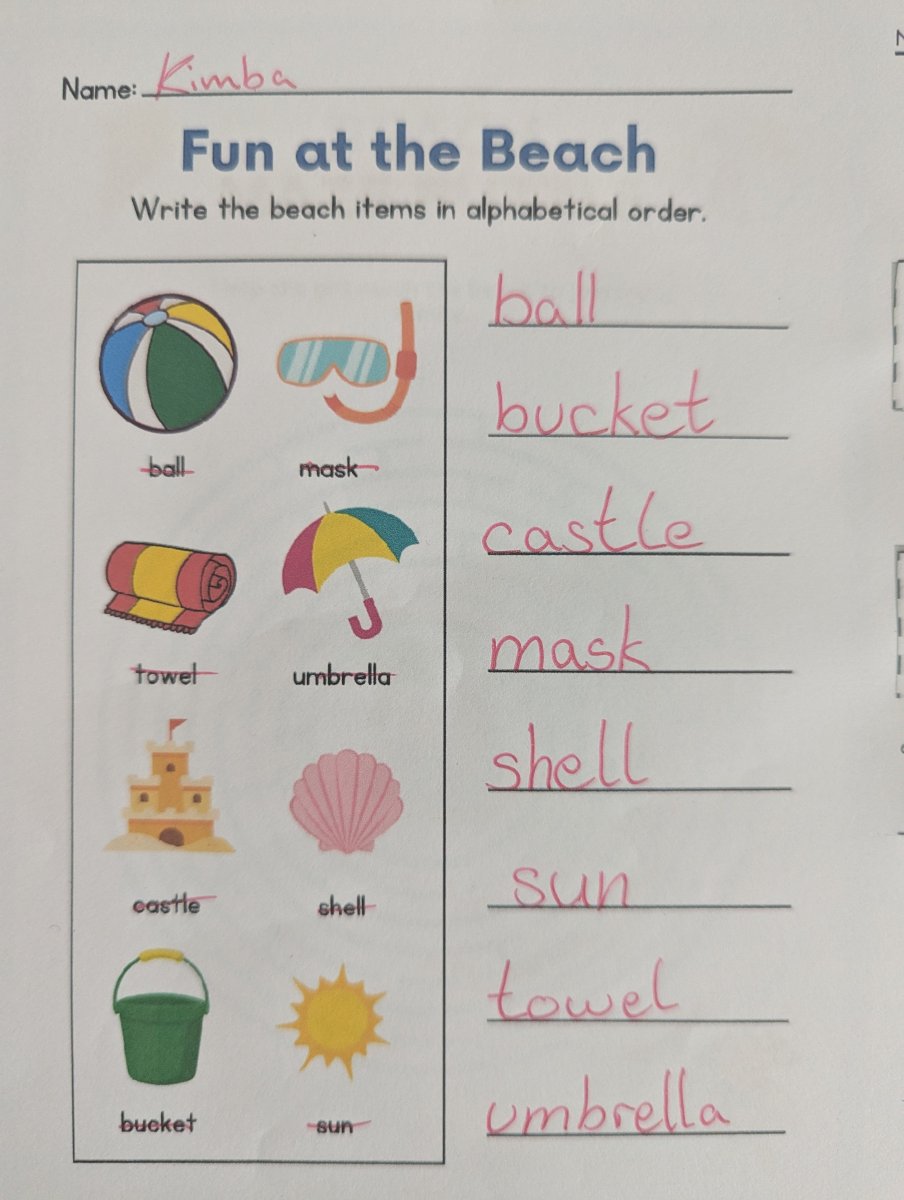 Name: Kimba
Fun at the Beach
Write the beach items in alphabetical order.
ball mask
towel umbrella
castle shell
bucket sun
ball
bucket
castle
mask
shell
sun
towel
umbrella